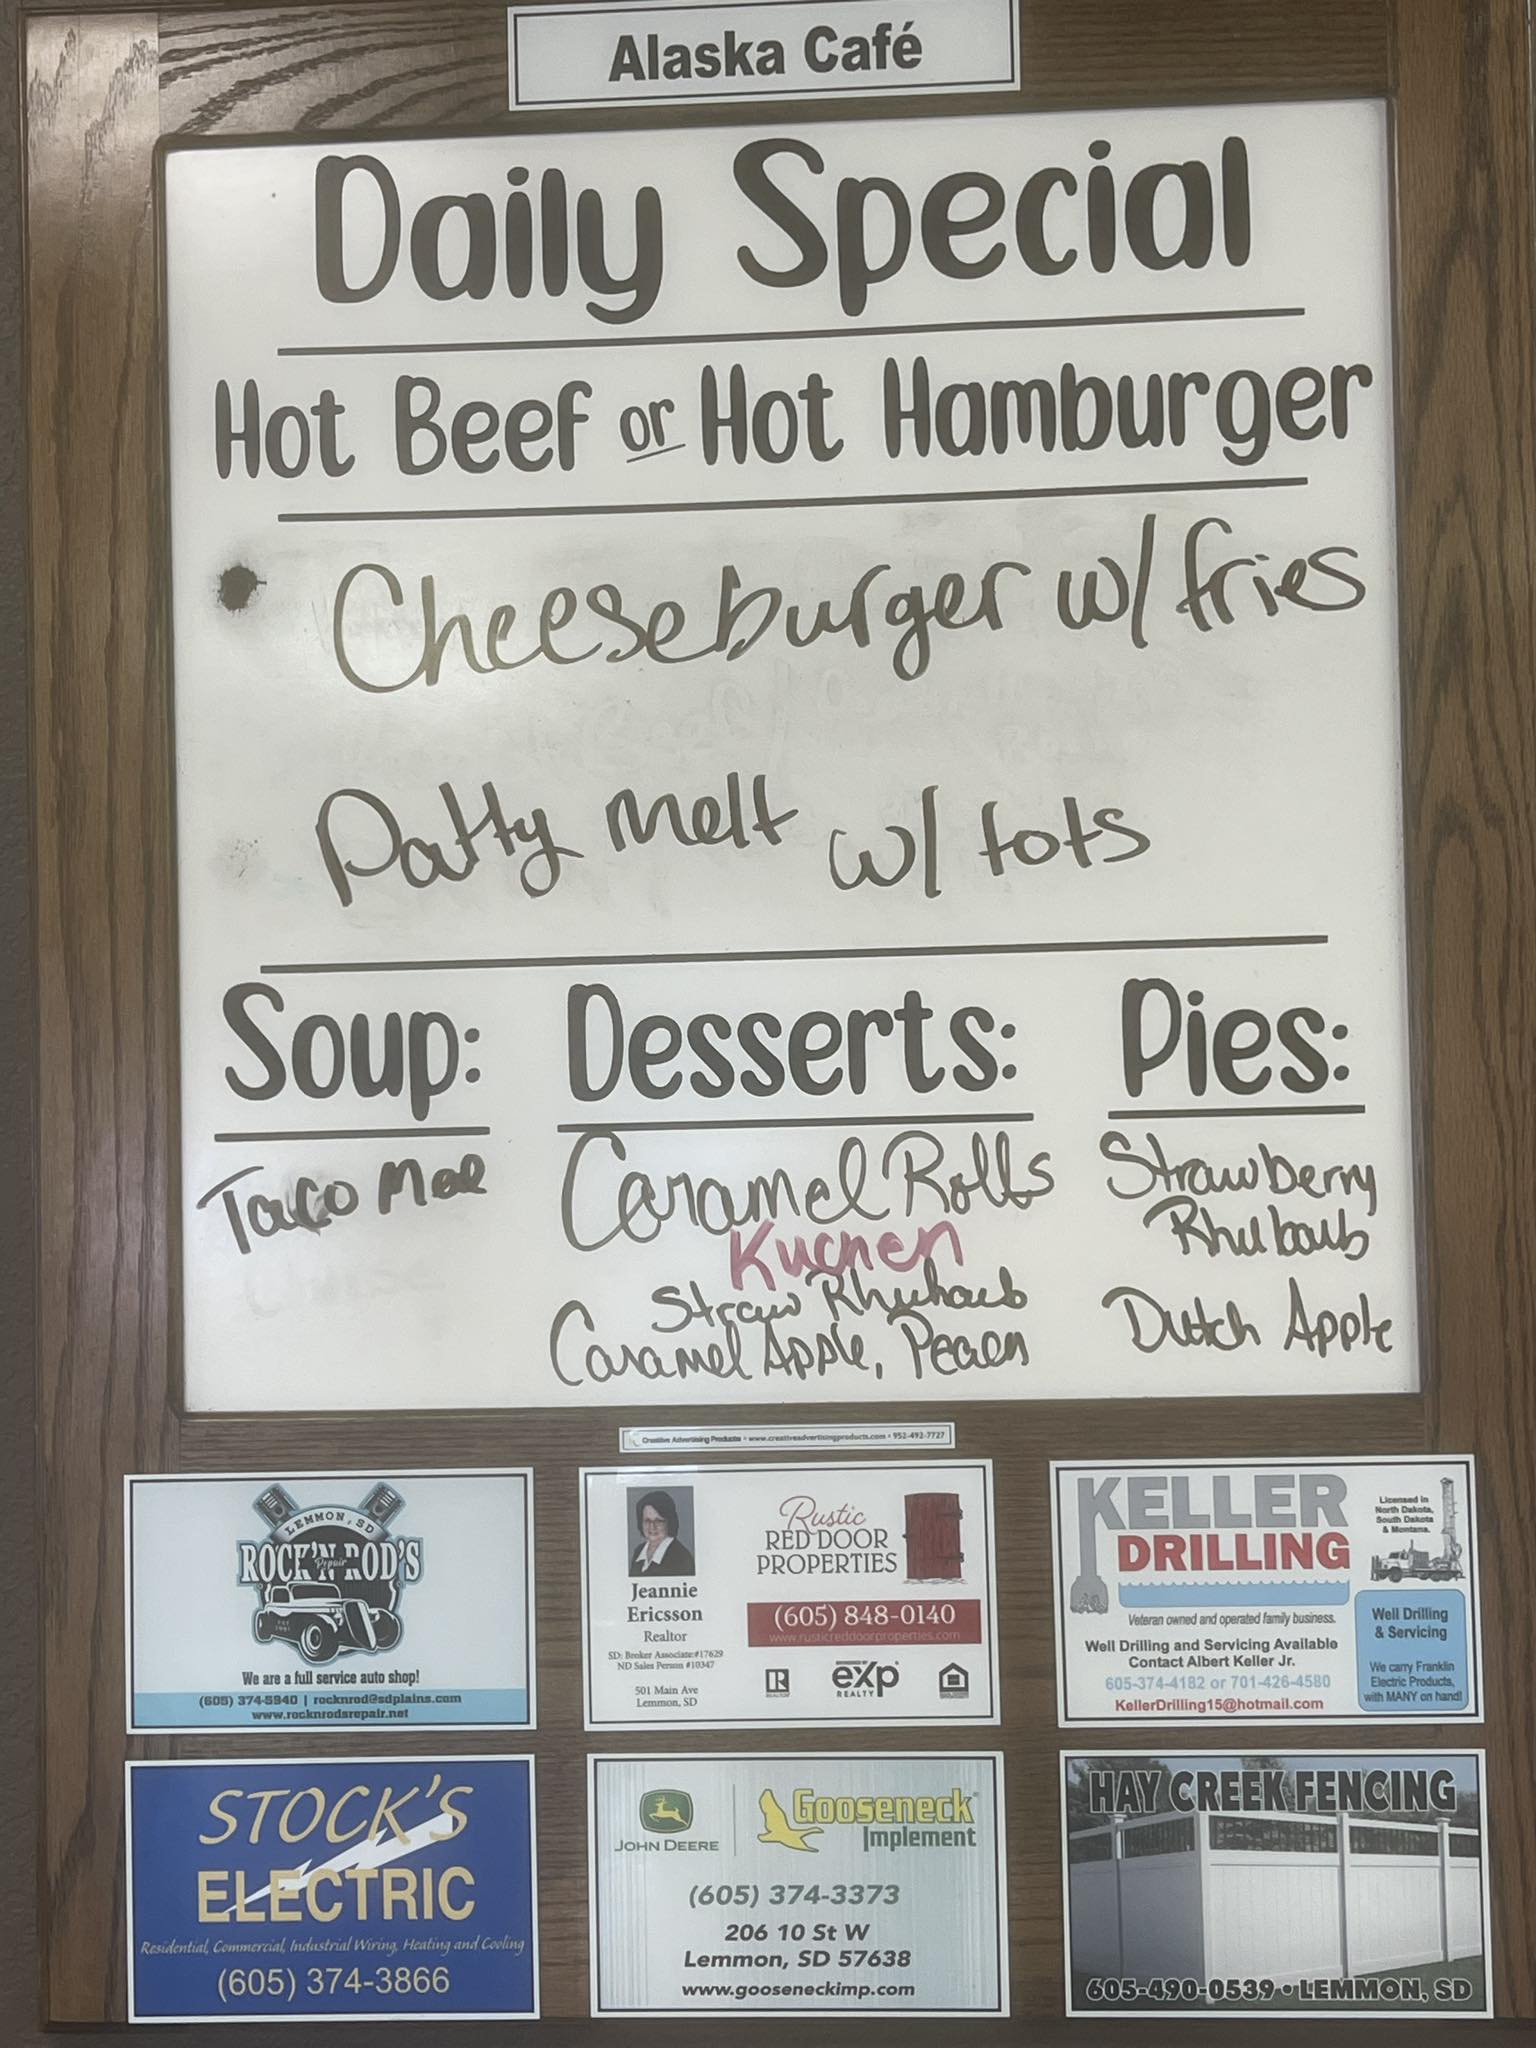 Alaska Café
Daily Special
Hot Beef or Hot Hamburger
Cheeseburger w/ fries
Patty melt w/ tots
Soup:
Taco Mac
Desserts:
Caramel Rolls
Kuchen
Straw Rhubarb
Caramel Apple, Pecan
Pies:
Strawberry
Rhubarb
Dutch Apple
Creative Advertising Products • www.creativeadvertisingproducts.com • 952-492-7727
LEMMON, SD
ROCK'N ROD'S
Repair
We are a full service auto shop!
(605) 374-5940 | rocknrod@sdplains.com
www.rocknrodsrepair.net
Jeannie
Ericsson
Realtor
SD: Broker Associate:#17629
ND Sales Person #10347
501 Main Ave
Lemmon, SD
Rustic
RED DOOR
PROPERTIES
(605) 848-0140
www.rusticreddoorproperties.com
REALTOR
eXp
REALTY
KELLER
DRILLING
Licensed in
North Dakota,
South Dakota
& Montana.
Veteran owned and operated family business.
Well Drilling and Servicing Available
Contact Albert Keller Jr.
605-374-4182 or 701-426-4580
KellerDrilling15@hotmail.com
Well Drilling
& Servicing
We carry Franklin
Electric Products,
with MANY on hand!
STOCK'S
ELECTRIC
Residential, Commercial, Industrial Wiring, Heating and Cooling
(605) 374-3866
JOHN DEERE
Gooseneck
Implement
(605) 374-3373
206 10 St W
Lemmon, SD 57638
www.gooseneckimp.com
HAY CREEK FENCING
605-490-0539 • LEMMON, SD